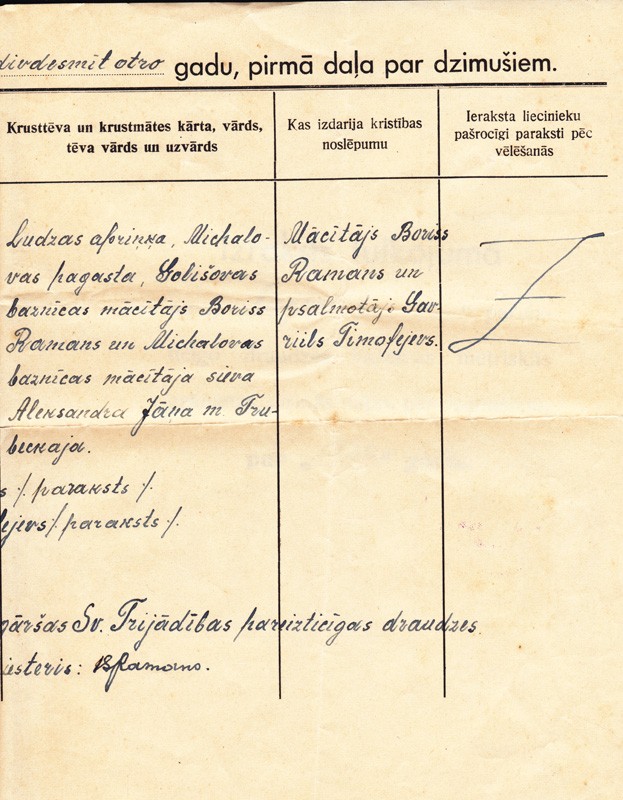 divdesmit otro gadu, pirmā daļa par dzimušiem.
Krusttēva un krustmātes kārta, vārds,
tēva vārds un uzvārds
Kas izdarija kristības
noslēpumu
Ieraksta liecinieku
pašrocīgi paraksti pēc
vēlēšanās
Ludzas apriņķa, Michalo-
vas pagasta, Golišovas
baznīcas mācītājs Boriss
Ramans un Michalovas
baznīcas mācītāja sieva
Aleksandra Jāņa m. Tru-
beckaja.
Mācītājs Boriss
Ramans un
psalmotājs Gav-
riils Timofejevs.
s /. paraksts /.
ejevs /. paraksts /.
gāršas Sv. Trijādības pareizticīgas draudzes
iesteris: BRamans.